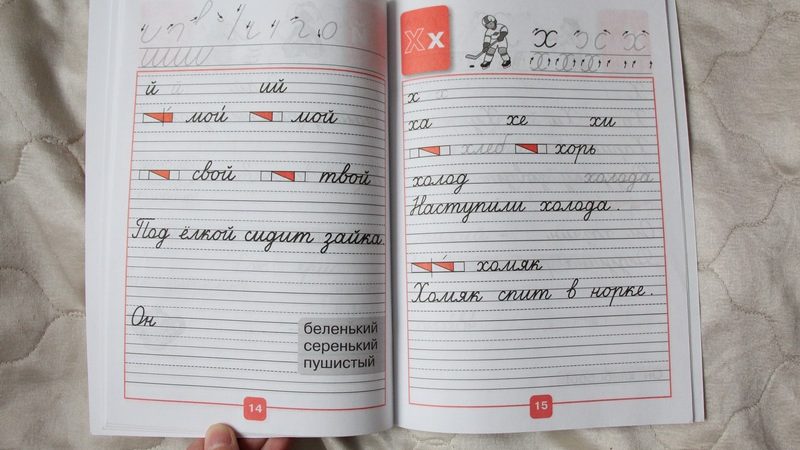 й ий
мои́ мой
свой твой
Под ёлкой сидит зайка.
Он
беленький
серенький
пушистый
14
Х х
х
ха хе хи
хлеб хорь
холод холода
Наступили холода.
хомяк
Хомяк спит в норке.
15